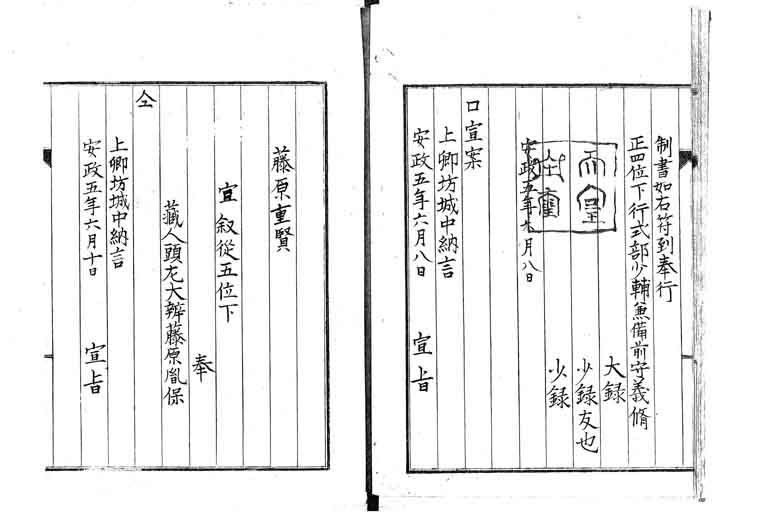 制書如右符到奉行
正四位下行式部少輔兼備前守義脩
大録
少録友也
少録
安政五年六月八日
口宣案
上卿坊城中納言
安政五年六月八日 宣旨
藤原重賢
宜叙從五位下
奉
藏人頭左大辨藤原胤保
仝
上卿坊城中納言
安政五年六月十日 宣旨